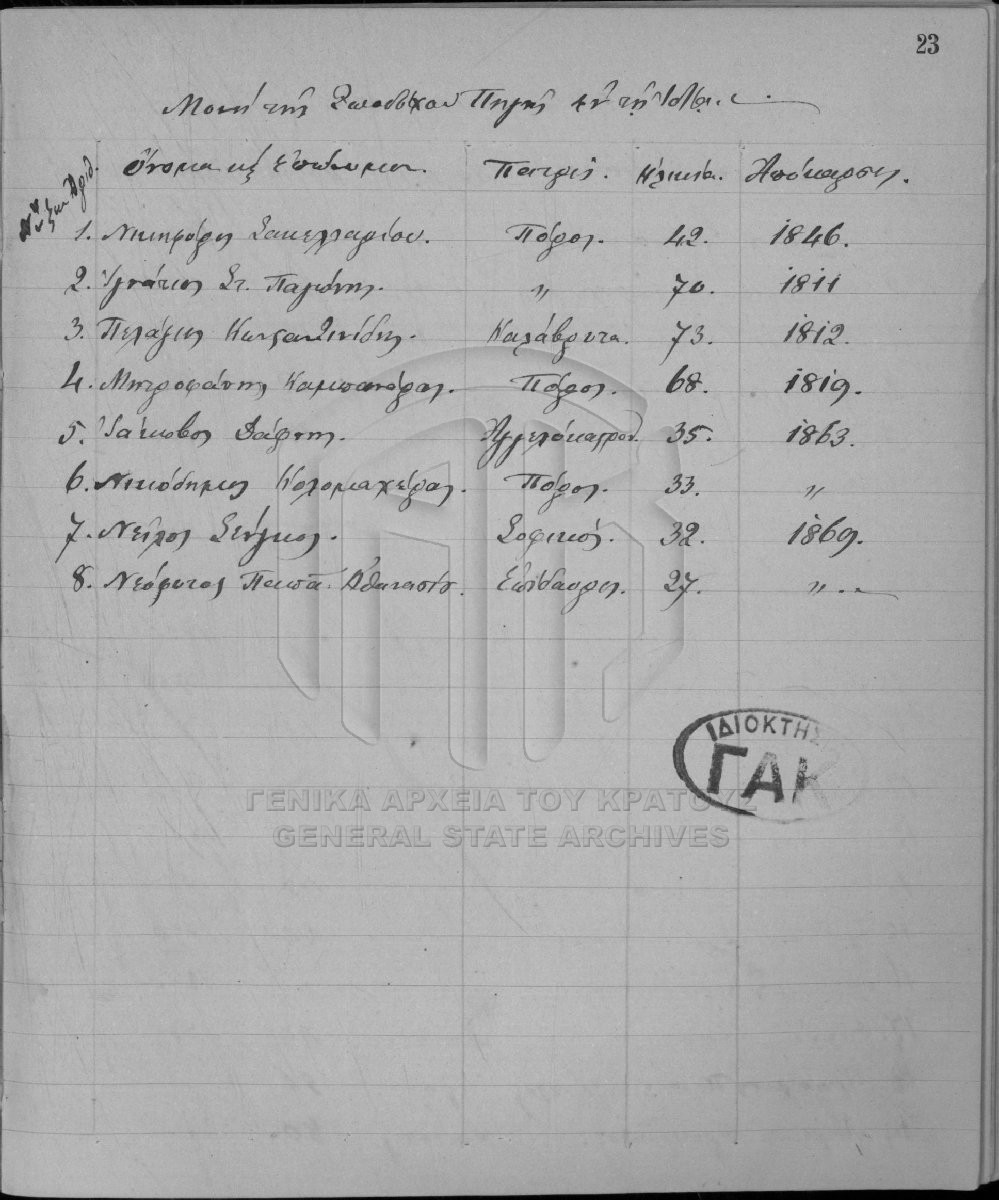 23
Μονή τῆς Ζωοδόχου Πηγῆς ἐν τῇ
Αὔξων Ἀριθ. Ὄνομα κ Ἐπώνυμον. Πατρίς. Ἡλικία. Ἀπόκαρσις.
1. Νικηφόρος Σακελλαρίου. Πόρος. 42. 1846.
2. Ἰγνάτιος Στ. Παγώνης. 〃 70. 1811
3. Πελάγιος Κωνσταντινίδης. Καλάβρυτα. 73. 1812.
4. Μητροφάνης Καμπανάρος. Πόρος. 68. 1819.
5. Ἰάκωβος Δάφνης. Ἀγγελόκαστρον. 35. 1863.
6. Νικόδημος Καλομαχέρας. Πόρος. 33. 〃
7. Νεῖλος Σοφικός. 32. 1869.
8. Νεόφυτος Παπᾶ Ἀθανασίου. Ἐπίδαυρος. 27. 〃.
ΙΔΙΟΚΤΗΣ
ΓΑΚ
ΓΕΝΙΚΑ ΑΡΧΕΙΑ ΤΟΥ ΚΡΑΤΟΥΣ
GENERAL STATE ARCHIVES